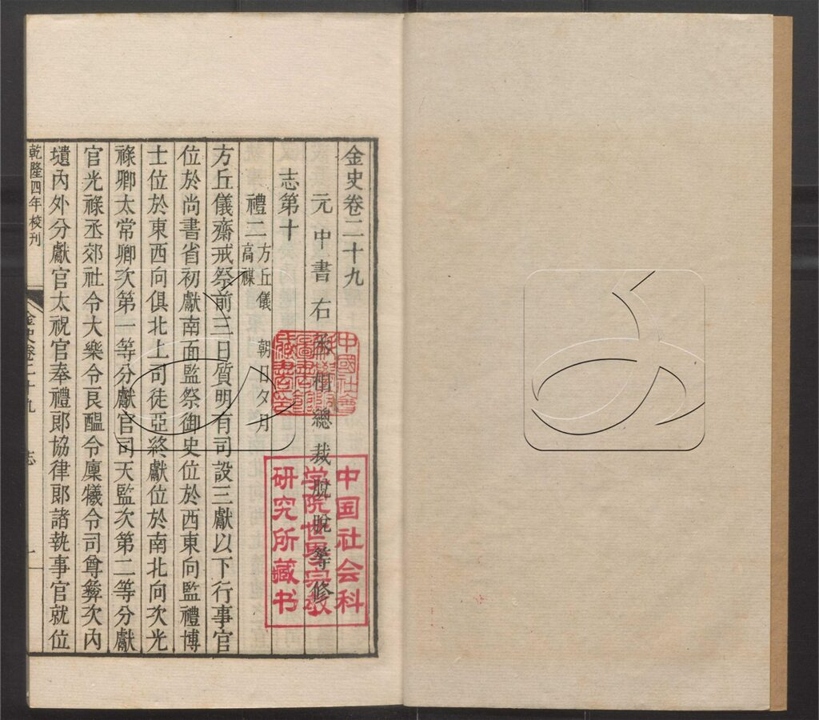 金史卷二十九
元中書右丞相總裁脫脫等修
志第十
禮二 方丘儀 朝日夕月
高禖
方丘儀齋戒祭前三日質明有司設三獻以下行事官
位於尚書省初獻南面監祭御史位於西東向監禮博
士位於東西向俱北上司徒亞終獻位於南北向次光
祿卿太常卿次第一等分獻官司天監次第二等分獻
官光祿丞郊社令大樂令良醞令廩犧令司尊彝次內
壝內外分獻官太祝官奉禮郎協律郎諸執事官就位
乾隆四年校刊
金史卷二十九 志 一
中国社会科
学院世界宗教
研究所藏书